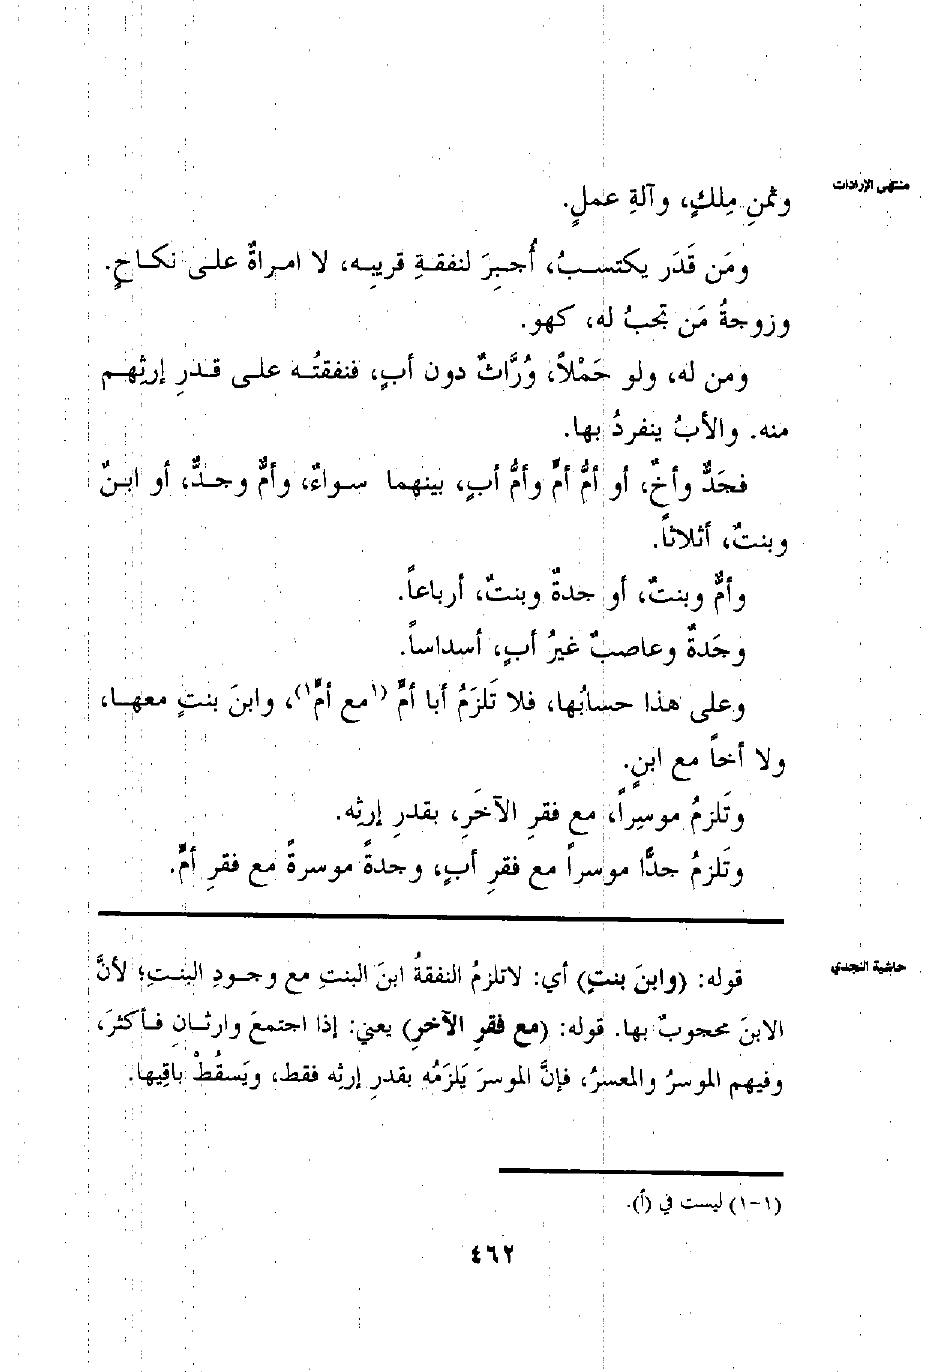 منتهى الإرادات
وثمنِ مِلكٍ، وآلةِ عملٍ.
ومَن قَدَر يكتسبُ، أُجبِرَ لنفقةِ قريبِه، لا امرأةٌ على نكاحٍ.
وزوجةُ مَن تجبُ له، كهو.
ومن له، ولو حَمْلاً، وُرَّاثٌ دون أبٍ، فنفقتُه على قدرِ إرثِهم
منه. والأبُ ينفردُ بها.
فجَدٌّ وأخٌ، أو أمُّ أمٍّ وأمُّ أبٍ، بينهما سواءٌ، وأمٌّ وجدٌّ، أو ابنٌ
وبنتٌ، أثلاثاً.
وأمٌّ وبنتٌ، أو جدةٌ وبنتٌ، أرباعاً.
وجَدةٌ وعاصبٌ غيرُ أبٍ، أسداساً.
وعلى هذا حسابُها، فلا تَلزَمُ أبا أمٍّ (١مع أمٍّ١)، وابنَ بنتٍ معها،
ولا أخاً مع ابنٍ.
وتَلزمُ موسِراً، مع فقرِ الآخَرِ، بقدرِ إرثِه.
وتَلزمُ جدًّا موسراً مع فقرِ أبٍ، وجدةً موسرةً مع فقرِ أمٍّ.
حاشية النجدي
قوله: (وابنَ بنتٍ) أي: لاتلزمُ النفقةُ ابنَ البنتِ مع وجودِ البنتِ؛ لأنَّ
الابنَ محجوبٌ بها. قوله: (مع فقرِ الآخرِ) يعني: إذا اجتمعَ وارثانِ فأكثرَ،
وفيهم الموسرُ والمعسرُ، فإنَّ الموسرَ يَلزَمُه بقدرِ إرثِه فقط، ويَسقُطْ باقِيها.
(١-١) ليست في (أ).
٤٦٢